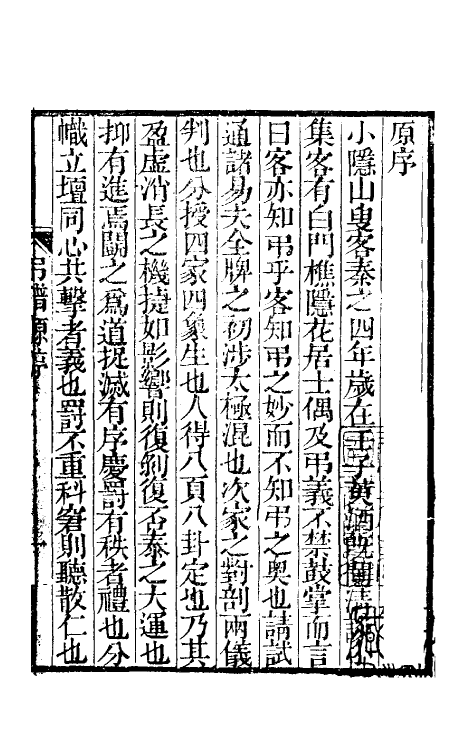 原序
小隱山叟客秦之四年歲在壬子黃酒既闌清
集客有白門樵隱花居士偶及弔義不禁鼓掌而言
曰客亦知弔乎客知弔之妙而不知弔之奧也請試
通諸易夫全牌之初渉太極混也次家之對剖兩儀
判也分授四家四象生也人得八頁八卦定也乃其
盈虛消長之機捷如影響則復剝復否泰之大運也
抑有進焉鬭之為道捉滅有序慶罰有秩者禮也分
幟立壇同心共擊者義也罰不重科窘則聽散仁也
弔譜原序